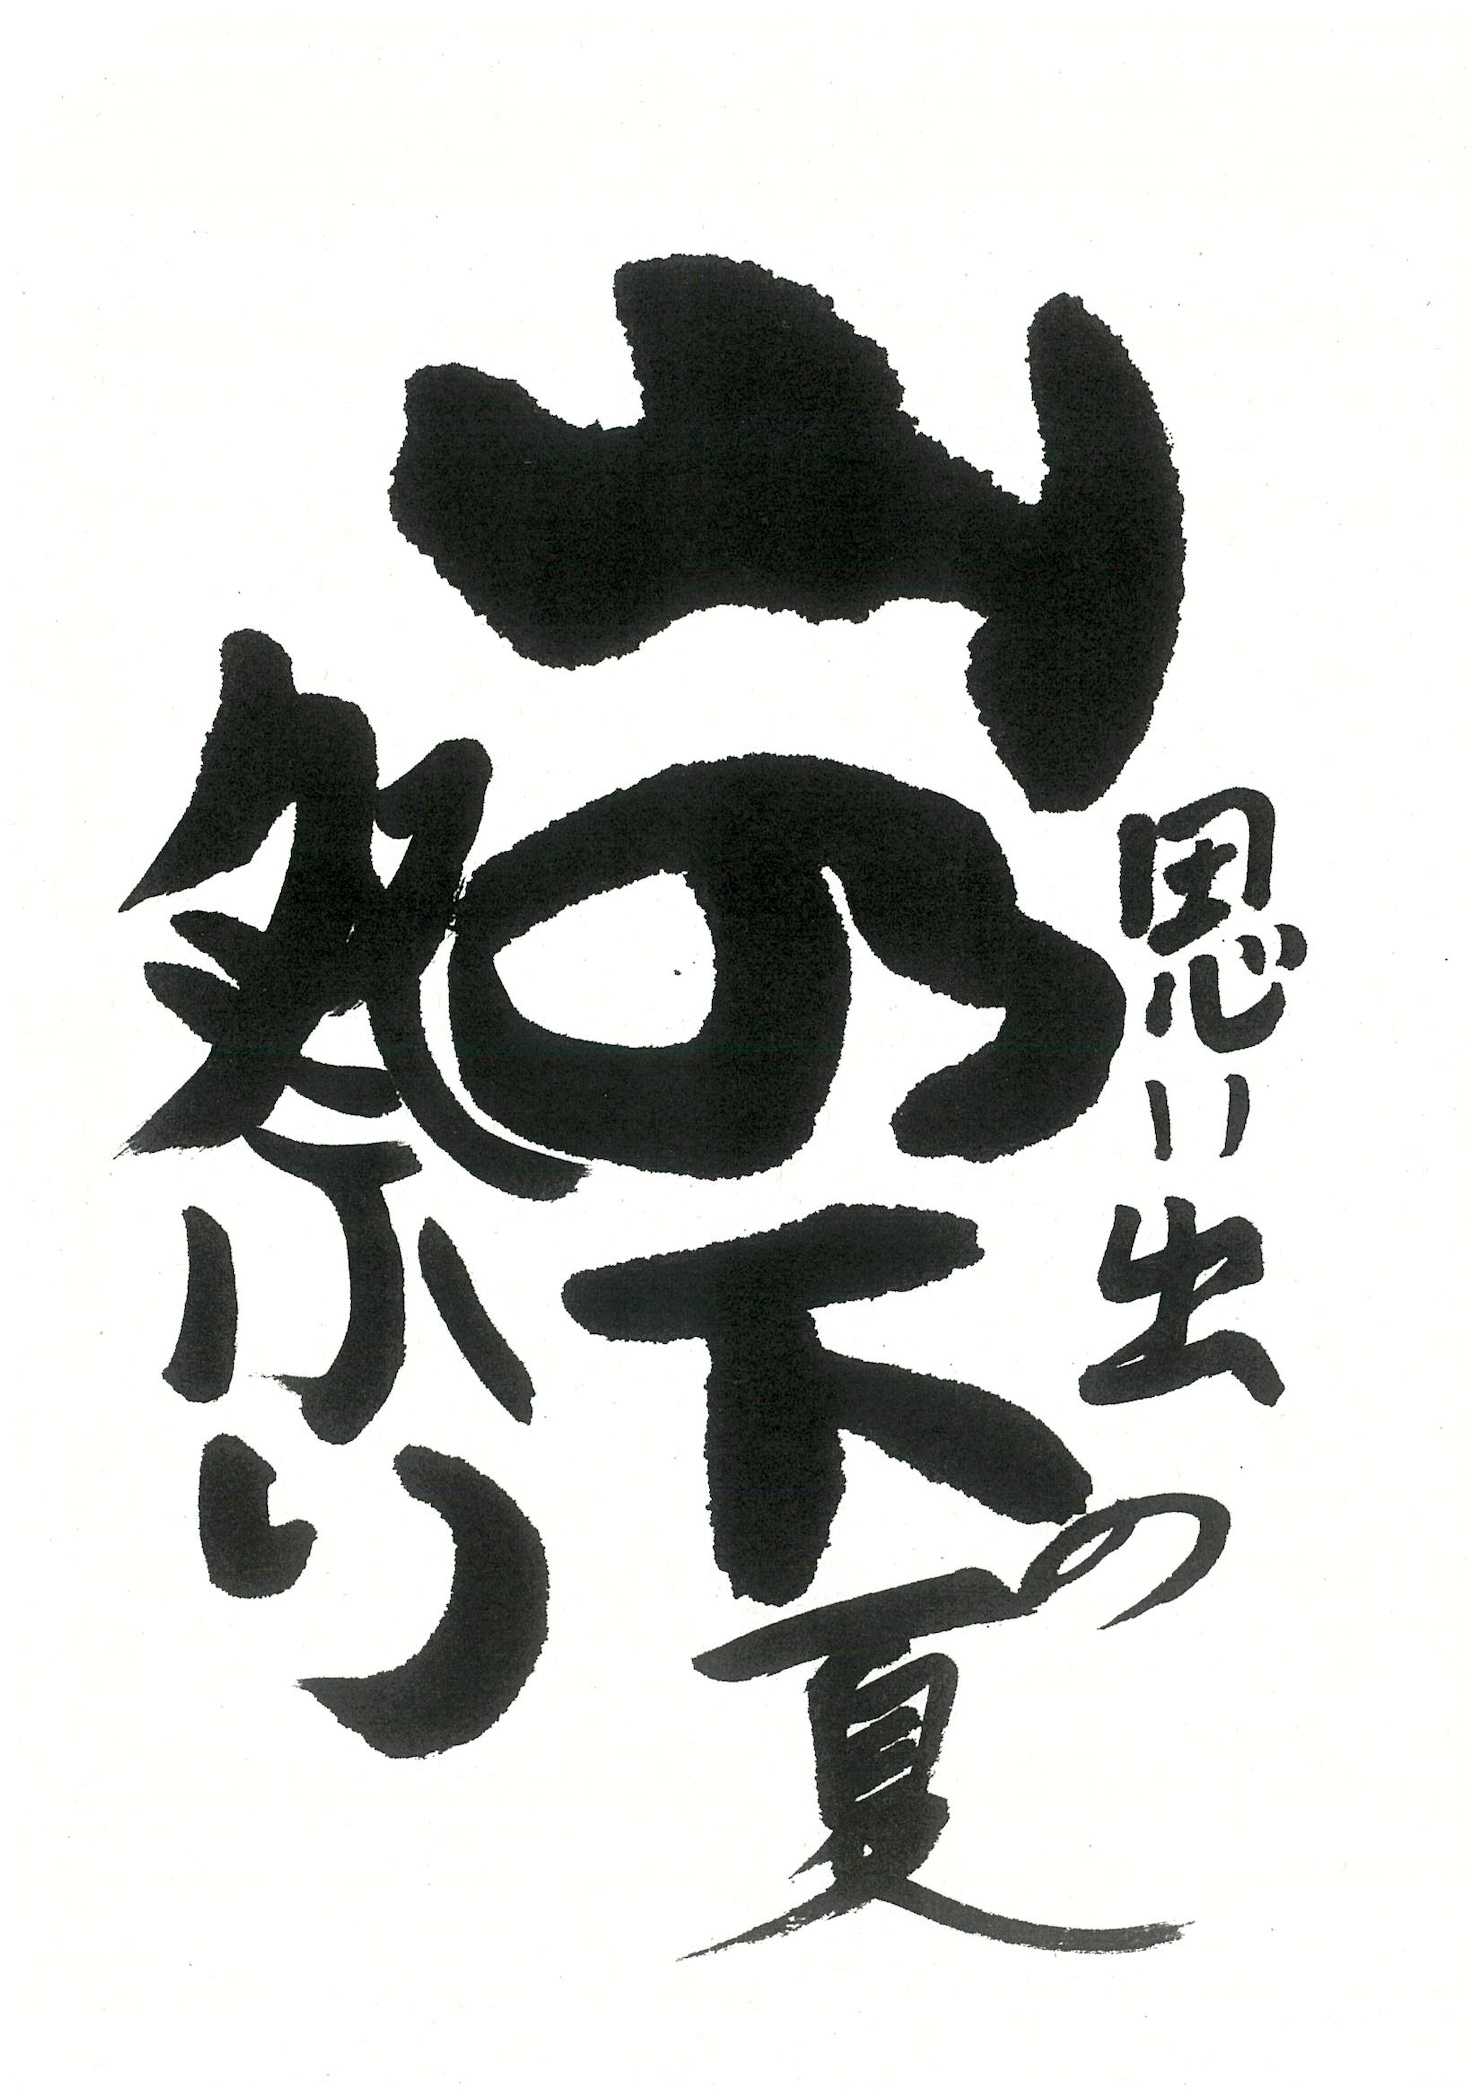 思い出の夏
山の下
祭り